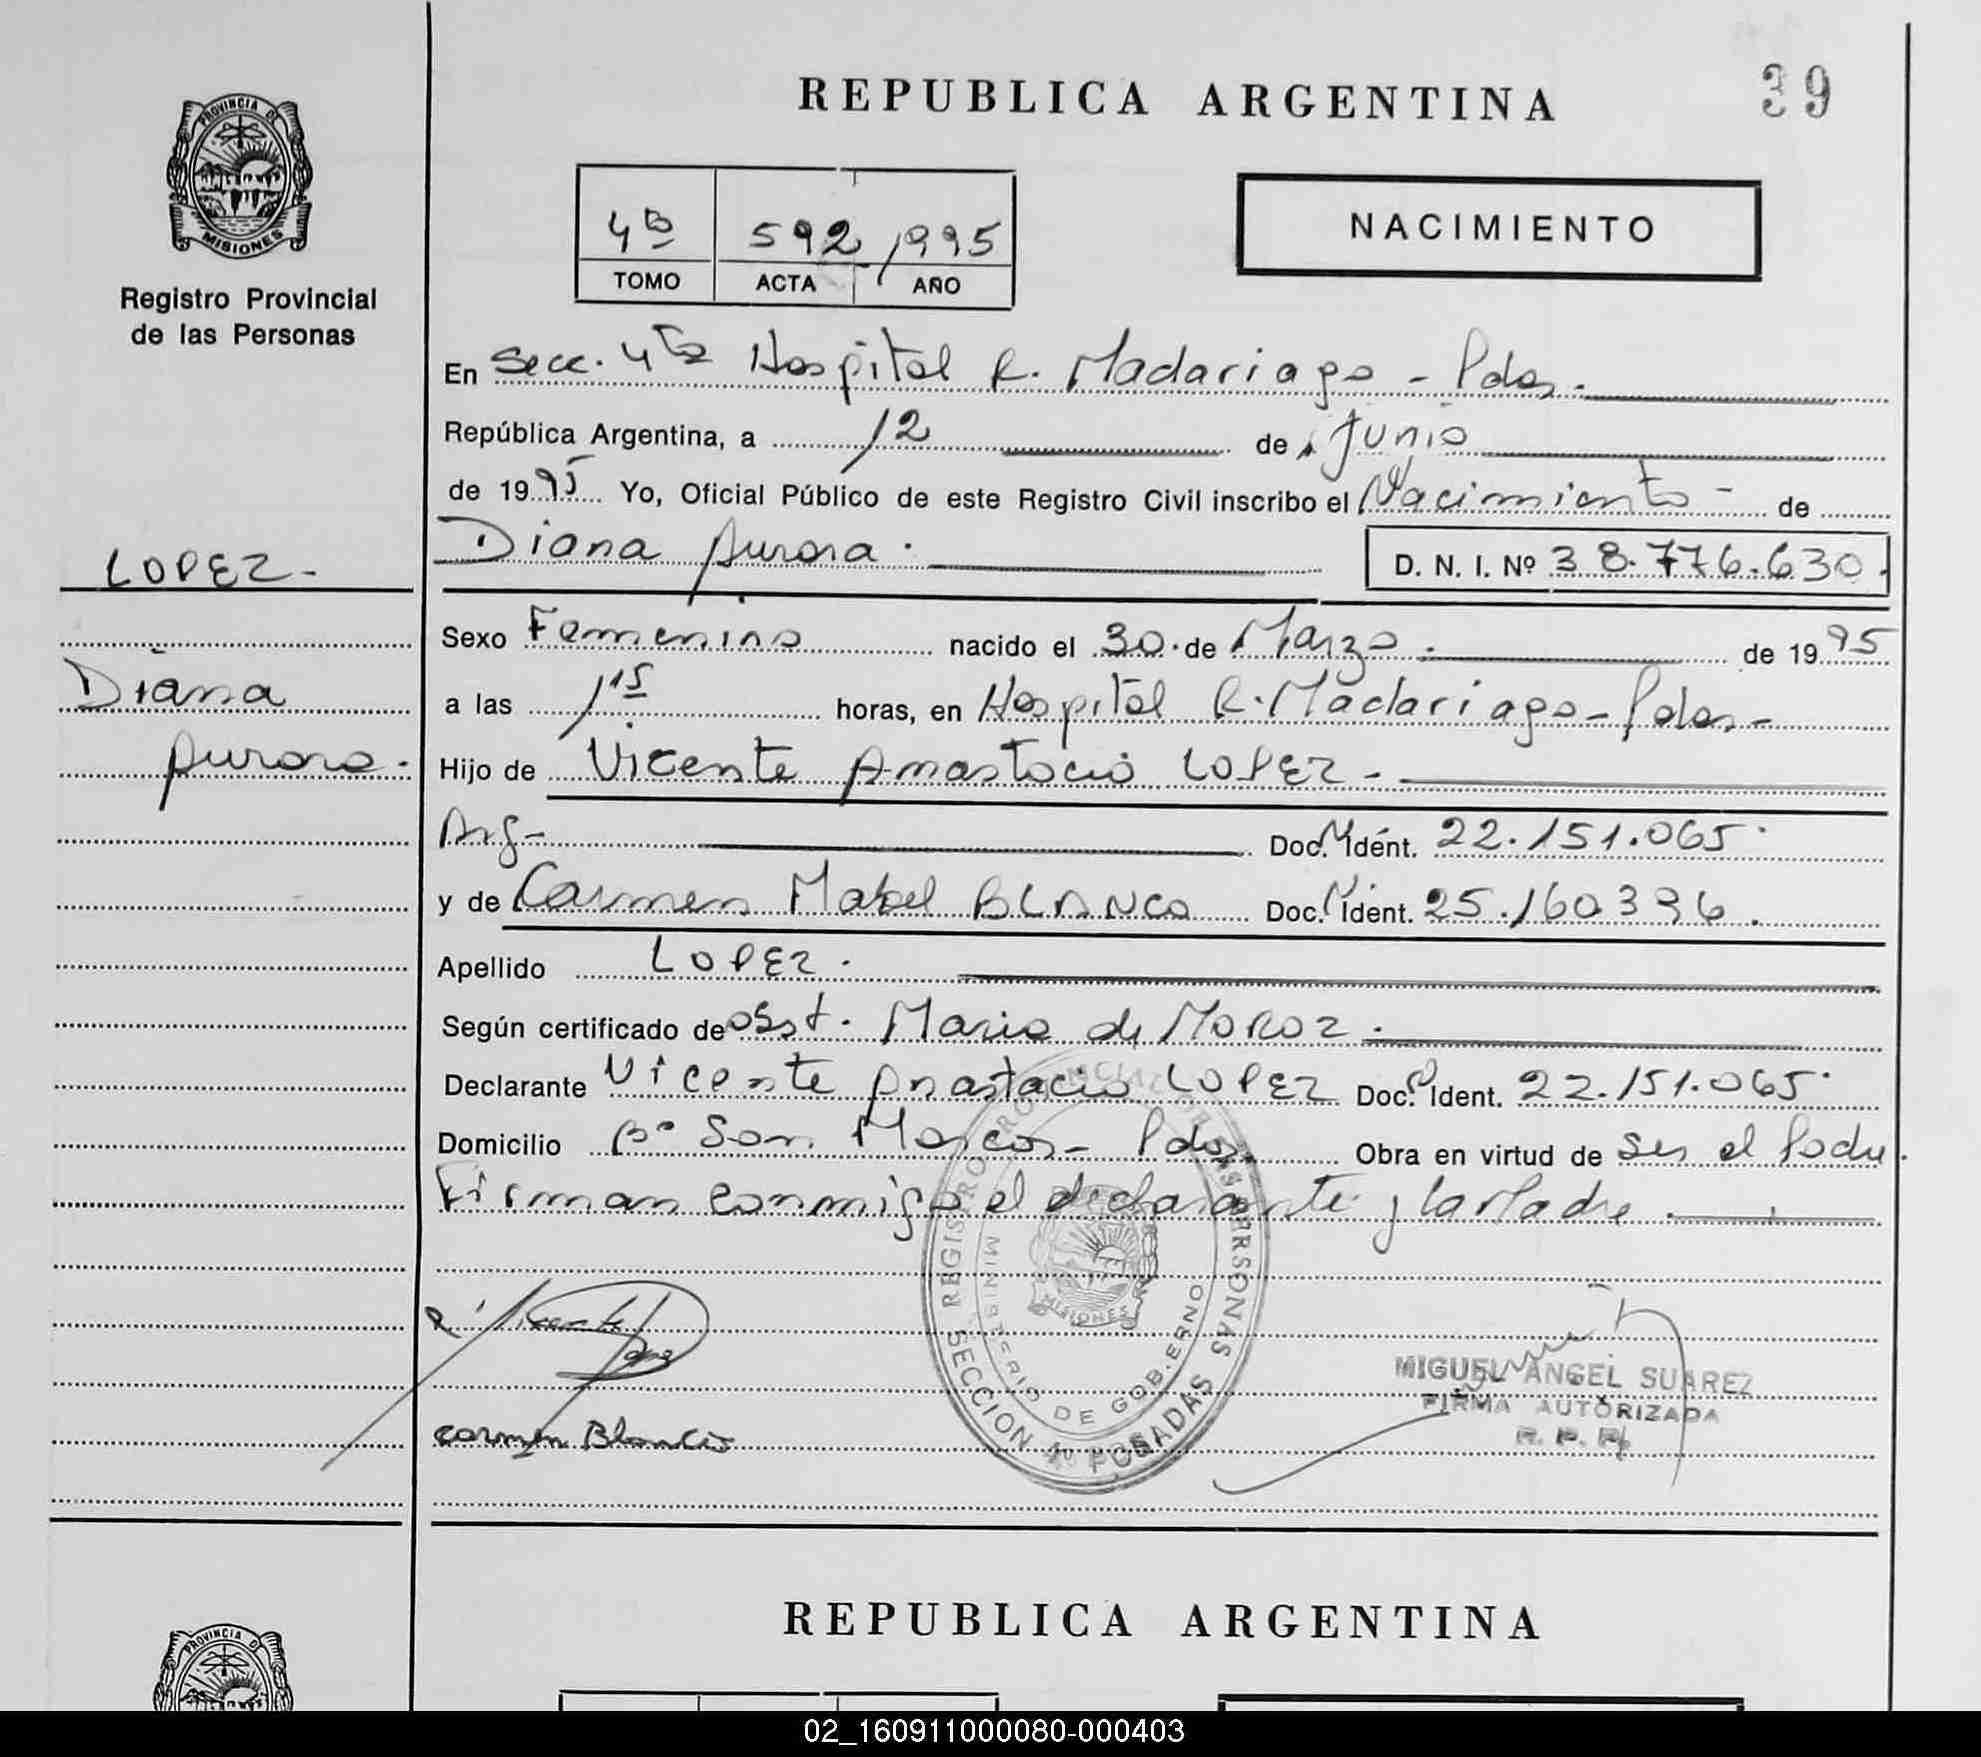 REPUBLICA ARGENTINA
39
PROVINCIA DE
MISIONES
Registro Provincial
de las Personas
4ta 592 1995
TOMO ACTA AÑO
NACIMIENTO
En Secc. 4ta Hospital R. Madariaga - Pdas.
República Argentina, a 12 de Junio
de 1995 Yo, Oficial Público de este Registro Civil inscribo el Nacimiento - de
Diana Aurora. D. N. I. Nº 38.776.630.
LOPEZ-
Diana
Aurora.
Sexo Femenino nacido el 30 de Marzo. de 1995
a las 1 15 horas, en Hospital R. Madariaga - Pdas -
Hijo de Vicente Anastacio LOPEZ -
Arg- Doc. N Idént. 22.151.065.
y de Carmen Mabel BLANCO Doc. N Ident. 25.160396.
Apellido LOPEZ.
Según certificado de obst. Maria de Moroz.
Declarante Vicente Anastacio LOPEZ Doc. N Ident. 22.151.065.
Domicilio Bº San Marcos - Pdas. Obra en virtud de ser el Padre.
Firman conmigo el declarante y la Madre.
Vicente Lopez
Carmen Blanco
REGISTRO PROVINCIAL DE LAS PERSONAS
MINISTERIO DE GOBIERNO
MISIONES
SECCION 4º POSADAS
MIGUEL ANGEL SUAREZ
FIRMA AUTORIZADA
R. P. P.
REPUBLICA ARGENTINA
PROVINCIA DE
02_160911000080-000403